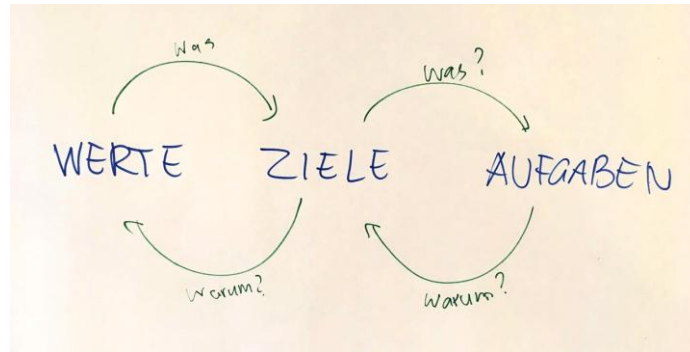 Was
Was?
WERTE ZIELE AUFGABEN
Warum?
Warum?